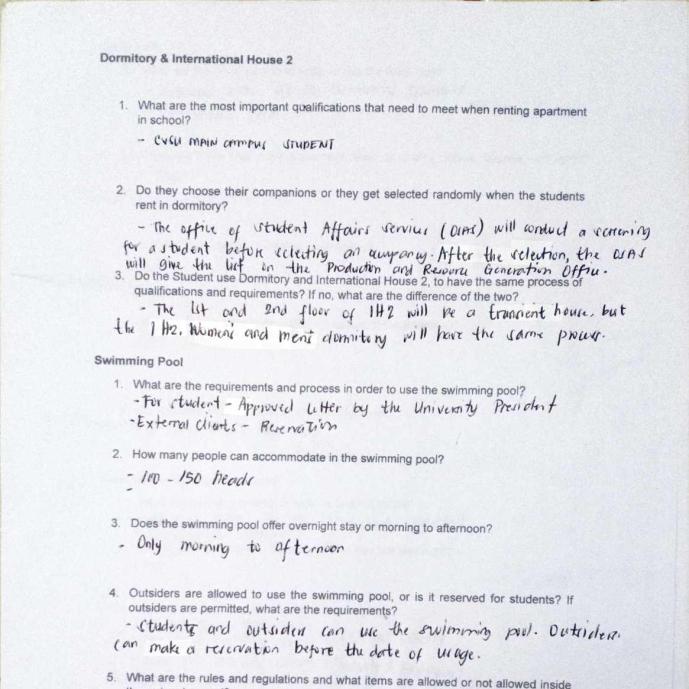 Dormitory & International House 2
1. What are the most important qualifications that need to meet when renting apartment
in school?
- CVSU MAIN CAMPUS STUDENT
2. Do they choose their companions or they get selected randomly when the students
rent in dormitory?
- The office of Student Affairs Services (OSAS) will conduct a screening
for a student before selecting an occupancy. After the selection, the OSAS
will give the list on the Production and Resource Generation Office.
3. Do the Student use Dormitory and International House 2, to have the same process of
qualifications and requirements? If no, what are the difference of the two?
- The 1st and 2nd floor of IH2 will be a transient house, but
the IH2, Women's and men's dormitory will have the same process.
Swimming Pool
1. What are the requirements and process in order to use the swimming pool?
- For student - Approved Letter by the University President
- External Clients - Reservation
2. How many people can accommodate in the swimming pool?
- 100 - 150 heads
3. Does the swimming pool offer overnight stay or morning to afternoon?
- Only morning to afternoon
4. Outsiders are allowed to use the swimming pool, or is it reserved for students? If
outsiders are permitted, what are the requirements?
- Students and outsiders can use the swimming pool. Outsiders
can make a reservation before the date of usage.
5. What are the rules and regulations and what items are allowed or not allowed inside